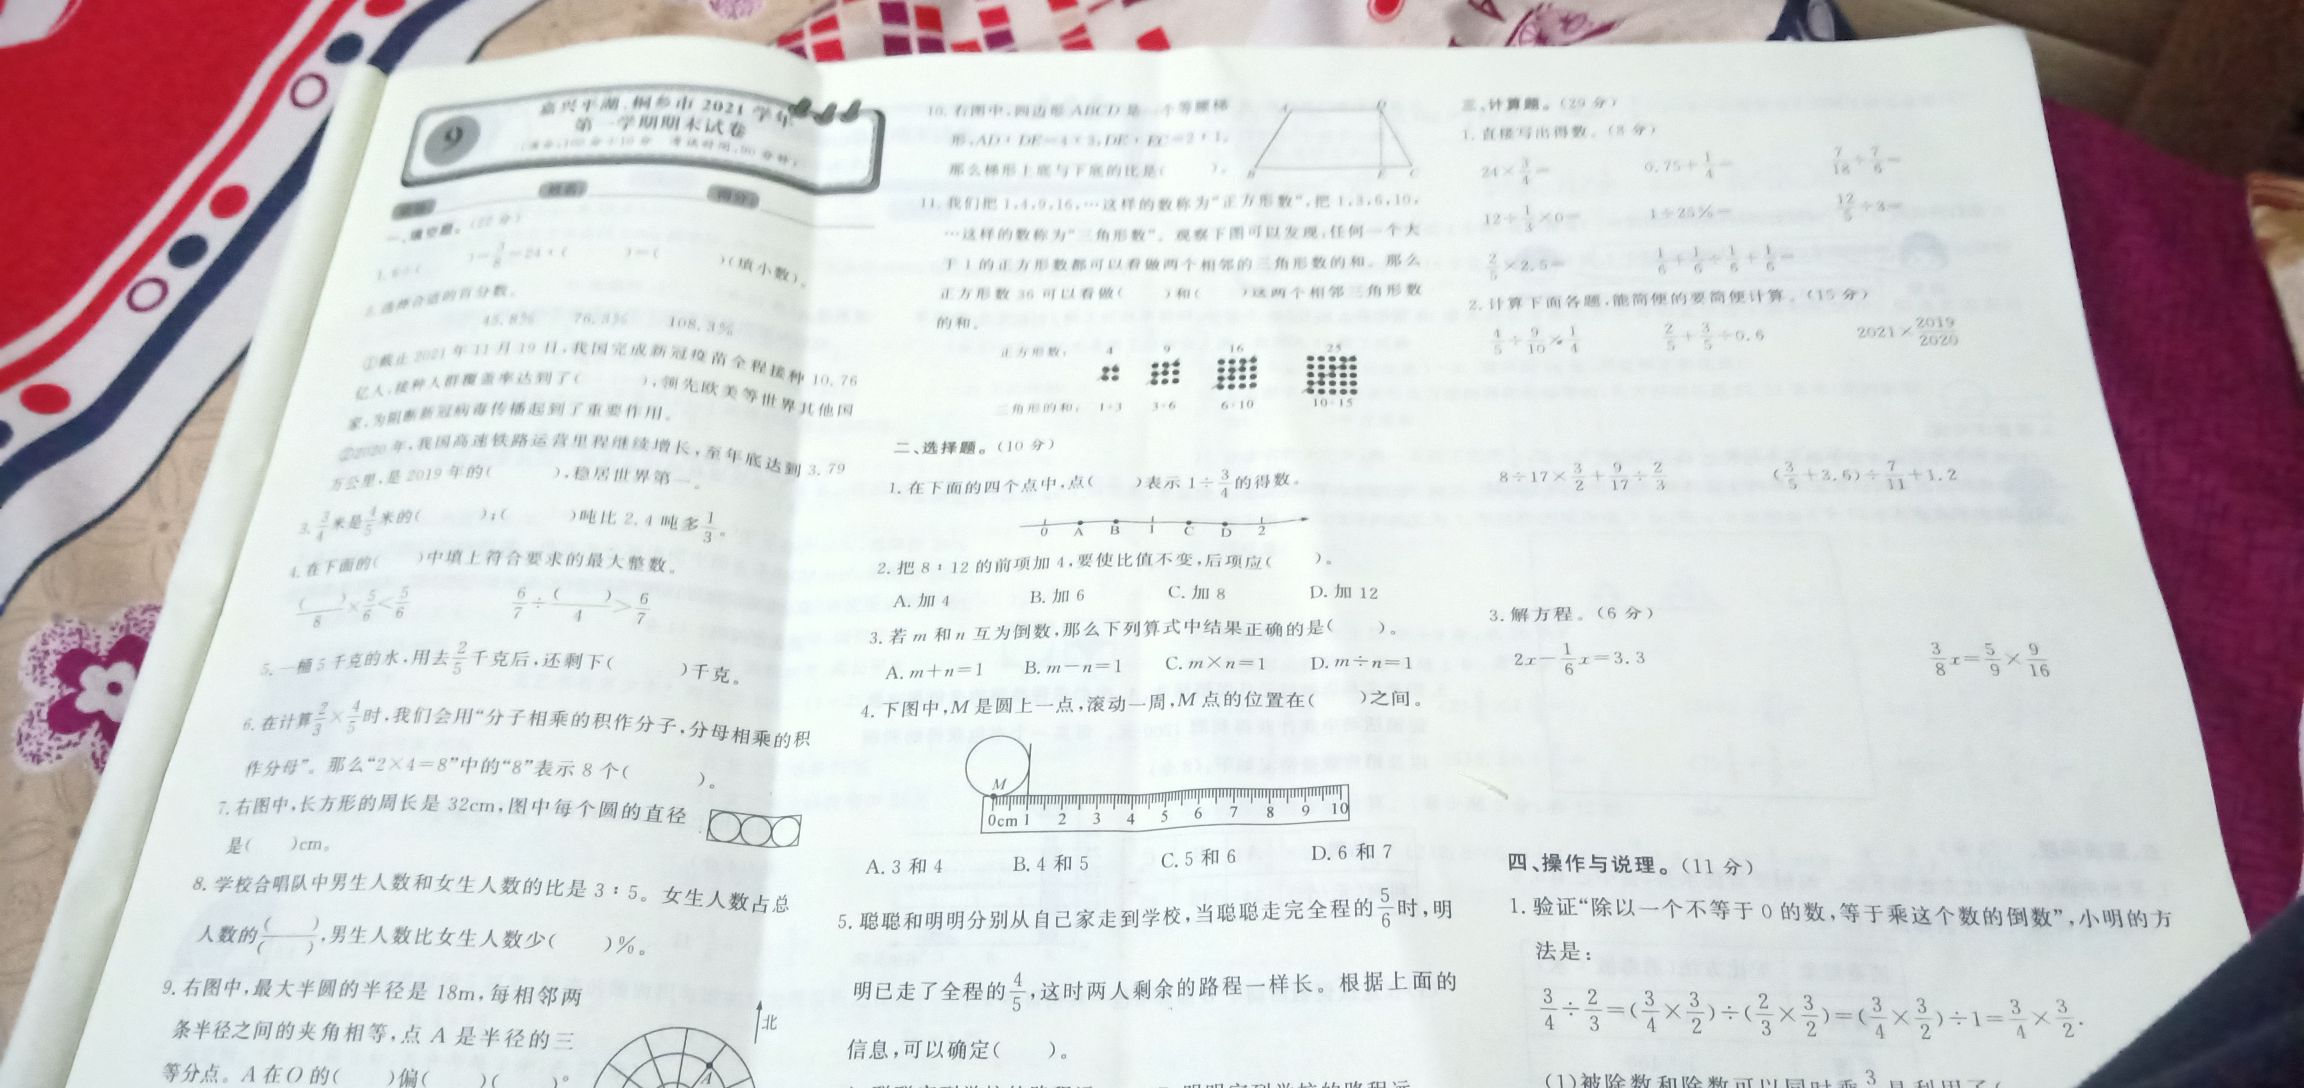 9
嘉兴平湖、桐乡市 2021 学年
第一学期期末试卷
姓名:
得分:
一、填空题。(22 分)
)=3/8=24÷( )=( )(填小数)。
2.选择合适的百分数。
45.8% 76.3% 108.3%
①截止 2021 年 11 月 19 日,我国完成新冠疫苗全程接种 10.76
亿人,接种人群覆盖率达到了( ),领先欧美等世界其他国
家,为阻断新冠病毒传播起到了重要作用。
②2020 年,我国高速铁路运营里程继续增长,至年底达到 3.79
万公里,是 2019 年的( ),稳居世界第一。
3. 3/4米是4/5米的( );( )吨比 2.4 吨多1/3。
4.在下面的( )中填上符合要求的最大整数。
( )/8×5/6<5/6 6/7÷( )/4>6/7
5.一桶 5 千克的水,用去2/5千克后,还剩下( )千克。
6.在计算2/3×4/5时,我们会用“分子相乘的积作分子,分母相乘的积
作分母”。那么“2×4=8”中的“8”表示 8 个( )。
7.右图中,长方形的周长是 32cm,图中每个圆的直径
是( )cm。
8.学校合唱队中男生人数和女生人数的比是 3∶5。女生人数占总
人数的( )/( ),男生人数比女生人数少( )%。
9.右图中,最大半圆的半径是 18m,每相邻两
条半径之间的夹角相等,点 A 是半径的三
等分点。A 在 O 的( )偏( )( )°
北
A
10.右图中,四边形 ABCD 是一个等腰梯
形,AD∶DE=4∶3,DE∶EC=2∶1,
那么梯形上底与下底的比是( )。
A D
B E C
11.我们把 1,4,9,16,…这样的数称为“正方形数”,把 1,3,6,10,
…这样的数称为“三角形数”。观察下图可以发现,任何一个大
于 1 的正方形数都可以看做两个相邻的三角形数的和。那么
正方形数 36 可以看做( )和( )这两个相邻三角形数
的和。
正方形数: 4 9 16 25
三角形的和: 1+3 3+6 6+10 10+15
二、选择题。(10 分)
1.在下面的四个点中,点( )表示 1÷3/4的得数。
0 A B 1 C D 2
2.把 8∶12 的前项加 4,要使比值不变,后项应( )。
A.加 4 B.加 6 C.加 8 D.加 12
3.若 m 和 n 互为倒数,那么下列算式中结果正确的是( )。
A.m+n=1 B.m−n=1 C.m×n=1 D.m÷n=1
4.下图中,M 是圆上一点,滚动一周,M 点的位置在( )之间。
M
0cm 1 2 3 4 5 6 7 8 9 10
A.3 和 4 B.4 和 5 C.5 和 6 D.6 和 7
5.聪聪和明明分别从自己家走到学校,当聪聪走完全程的5/6时,明
明已走了全程的4/5,这时两人剩余的路程一样长。根据上面的
信息,可以确定( )。
三、计算题。(29 分)
1.直接写出得数。(8 分)
24×3/4= 0.75+1/4= 7/18÷7/6=
12÷1/3×0= 1÷25%= 12/5÷3=
2/5×2.5= 1/6+1/6÷1/6+1/6=
2.计算下面各题,能简便的要简便计算。(15 分)
4/5÷9/10×1/4 2/5+3/5÷0.6 2021×2019/2020
8÷17×3/2+9/17÷2/3 (3/5+3.6)÷7/11+1.2
3.解方程。(6 分)
2x−1/6x=3.3 3/8x=5/9×9/16
四、操作与说理。(11 分)
1.验证“除以一个不等于 0 的数,等于乘这个数的倒数”,小明的方
法是:
3/4÷2/3=(3/4×3/2)÷(2/3×3/2)=(3/4×3/2)÷1=3/4×3/2.
(1)被除数和除数可以同时乘3/